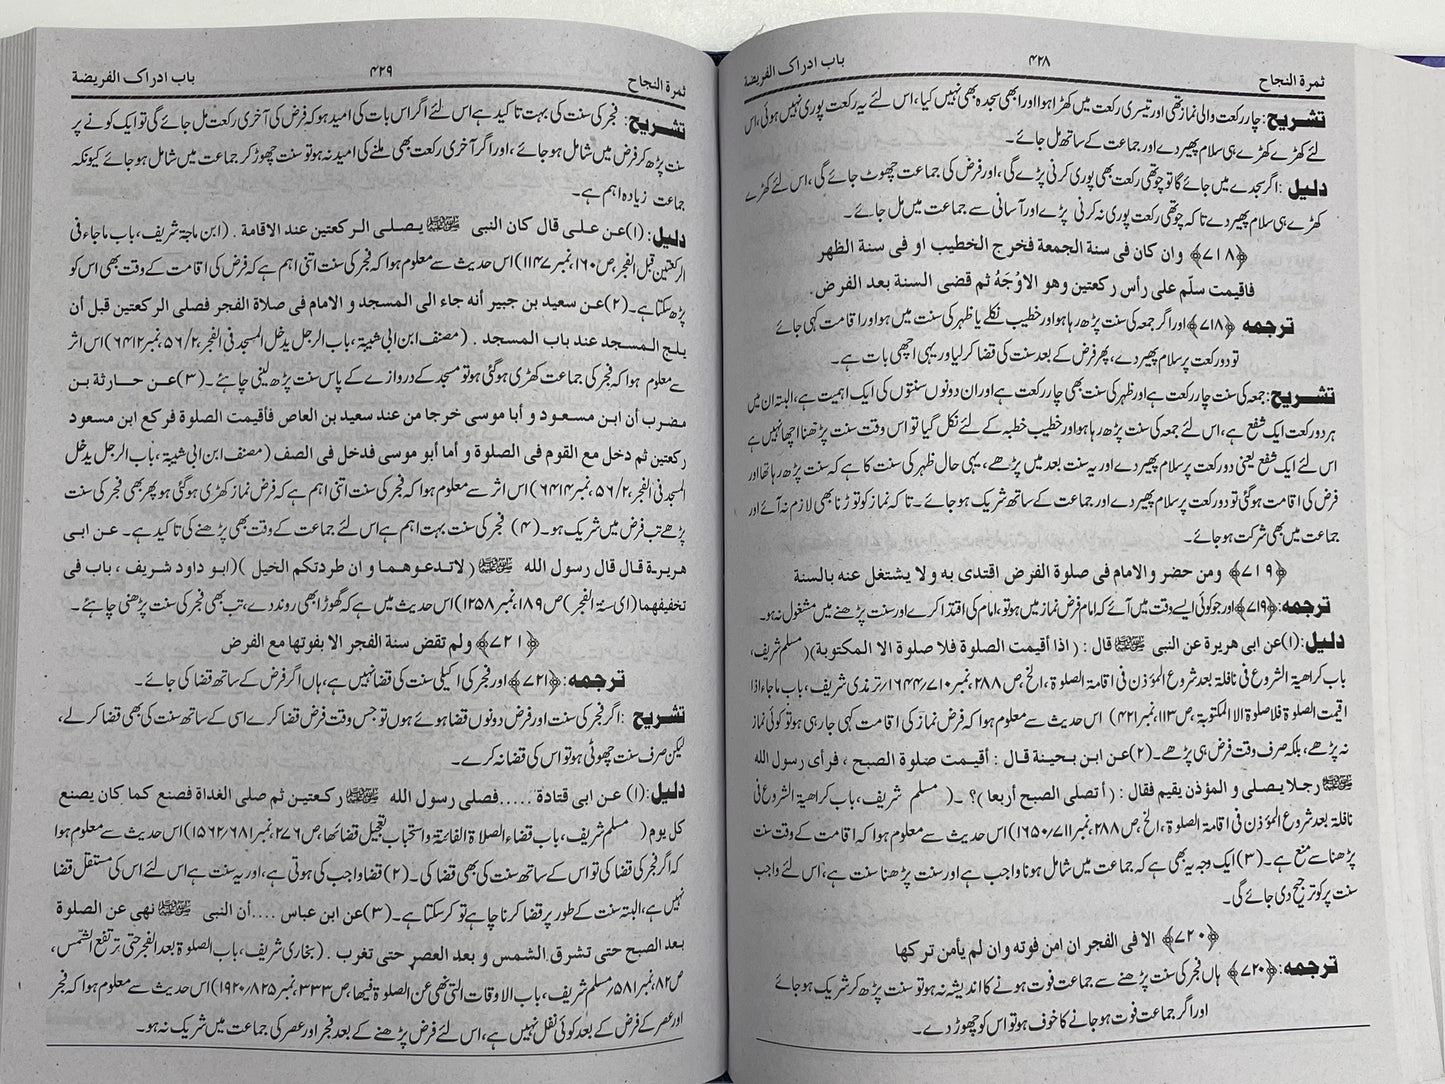 ثمرة النجاح ۴۲۸ باب ادراک الفريضة
تشریح: چار رکعت والی نماز تھی اور تیسری رکعت میں کھڑا ہوا اور ابھی سجدہ بھی نہیں کیا، اس لئے یہ رکعت پوری نہیں ہوئی، اس
لئے کھڑے کھڑے ہی سلام پھیر دے اور جماعت کے ساتھ مل جائے۔
دلیل: اگر سجدے میں جائے گا تو چوتھی رکعت بھی پوری کرنی پڑے گی، اور فرض کی جماعت چھوٹ جائے گی، اس لئے کھڑے
کھڑے ہی سلام پھیر دے تاکہ چوتھی رکعت پوری نہ کرنی پڑے اور آسانی سے جماعت میں مل جائے۔
﴿۷۱۸﴾ وان كان فى سنة الجمعة فخرج الخطيب او فى سنة الظهر
فاقيمت سلّم على رأس ركعتين وهو الاوْجَهُ ثم قضى السنة بعد الفرض.
ترجمه ﴿۷۱۸﴾ اور اگر جمعہ کی سنت پڑھ رہا ہو اور خطیب نکلے یا ظہر کی سنت میں ہو اور اقامت کہی جائے
تو دو رکعت پر سلام پھیر دے، پھر فرض کے بعد سنت کی قضا کرلیا اور یہی اچھی بات ہے۔
تشریح: جمعہ کی سنت چار رکعت ہے اور ظہر کی سنت بھی چار رکعت ہے اور ان دونوں سنتوں کی ایک اہمیت ہے، البتہ ان میں
ہر دو رکعت ایک شفع ہے، اس لئے جمعہ کی سنت پڑھ رہا ہو اور خطیب خطبہ کے لئے نکل گیا تو اس وقت سنت پڑھنا اچھا نہیں ہے
اس لئے ایک شفع یعنی دو رکعت پر سلام پھیر دے اور یہ سنت بعد میں پڑھے، یہی حال ظہر کی سنت کا ہے کہ سنت پڑھ رہا تھا اور
فرض کی اقامت ہو گئی تو دو رکعت پر سلام پھیر دے اور جماعت کے ساتھ شریک ہو جائے۔ تاکہ نماز کو توڑنا بھی لازم نہ آئے اور
جماعت میں بھی شرکت ہو جائے۔
﴿۷۱۹﴾ ومن حضر والامام فى صلوة الفرض اقتدى به ولا يشتغل عنه بالسنة
ترجمه: ﴿۷۱۹﴾ اور جو کوئی ایسے وقت میں آئے کہ امام فرض نماز میں ہو تو، امام کی اقتدا کرے اور سنت پڑھنے میں مشغول نہ ہو۔
دلیل: (۱) عن ابى هريرة عن النبى ﷺ قال : ( اذا أقيمت الصلوة فلا صلوة الا المكتوبة) (مسلم شریف،
باب کراھیۃ الشروع فی نافلۃ بعد شروع المؤذن فی اقامۃ الصلوۃ، الخ، ص ۲۸۸، نمبر ۷۱۰/۱۶۴۴/ ترمذی شریف، باب ماجاء اذا
اقیمت الصلوۃ فلا صلوۃ الا المکتوبۃ، ص ۱۱۳، نمبر ۴۲۱) اس حدیث سے معلوم ہوا کہ فرض نماز کی اقامت کہی جا رہی ہو تو کوئی نماز
نہ پڑھے، بلکہ صرف وقت فرض ہی پڑھے۔ (۲) عن ابن بحينة قال : أقيمت صلوة الصبح ، فرأى رسول الله
ﷺ رجلا يصلى و المؤذن يقيم فقال : ( أتصلى الصبح أربعا )؟ ۔( مسلم شریف، باب کراھیۃ الشروع فی
نافلۃ بعد شروع المؤذن فی اقامۃ الصلوۃ، الخ، ص ۲۸۸، نمبر ۷۱۱/۱۶۵۰) اس حدیث سے معلوم ہوا کہ اقامت کے وقت سنت
پڑھنا سے منع ہے۔ (۳) ایک وجہ یہ بھی ہے کہ جماعت میں شامل ہونا واجب ہے اور سنت پڑھنا سنت ہے، اس لئے واجب
سنت پر کو ترجیح دی جائے گی۔
﴿۷۲۰﴾ الا فى الفجر ان امن فوته وان لم يأمن تركها
ترجمه: ﴿۷۲۰﴾ ہاں فجر کی سنت پڑھنے سے جماعت فوت ہونے کا اندیشہ نہ ہو تو سنت پڑھ کر شریک ہو جائے
اور اگر جماعت فوت ہو جانے کا خوف ہو تو اس کو چھوڑ دے۔
ثمرة النجاح ۴۲۹ باب ادراک الفريضة
تشریح: فجر کی سنت کی بہت تاکید ہے اس لئے اگر اس بات کی امید ہو کہ فرض کی آخری رکعت مل جائے گی تو ایک کونے پر
سنت پڑھ کر فرض میں شامل ہو جائے، اور اگر آخری رکعت بھی ملنے کی امید نہ ہو تو سنت چھوڑ کر جماعت میں شامل ہو جائے کیونکہ
جماعت زیادہ اہم ہے۔
دلیل: (۱) عن على قال كان النبى ﷺ يصلى الركعتين عند الاقامة . (ابن ماجۃ شریف، باب ماجاء فی
الرکعتین قبل الفجر، ص ۱۶۰، نمبر ۱۱۴۷) اس حدیث سے معلوم ہوا کہ فجر کی سنت اتنی اہم ہے کہ فرض کی اقامت کے وقت بھی اس کو
پڑھ سکتا ہے۔ (۲) عن سعيد بن جبير أنه جاء الى المسجد و الامام فى صلاة الفجر فصلى الركعتين قبل أن
يلج المسجد عند باب المسجد . (مصنف ابن ابی شیبۃ، باب الرجل یدخل المسجد فی الفجر، ۲/ ۵۶، نمبر ۶۴۱۲) اس اثر
سے معلوم ہوا کہ فجر کی جماعت کھڑی ہو گئی ہو تو مسجد کے دروازے کے پاس سنت پڑھ لینی چاہئے۔ (۳) عن حارثة بن
مضرب أن ابن مسعود و أبا موسى خرجا من عند سعيد بن العاص فأقيمت الصلوة فركع ابن مسعود
ركعتين ثم دخل مع القوم فى الصلوة و أما أبو موسى فدخل فى الصف (مصنف ابن ابی شیبۃ، باب الرجل یدخل
المسجد فی الفجر، ۲/ ۵۶، نمبر ۶۴۱۴) اس اثر سے معلوم ہوا کہ فجر کی سنت اتنی اہم ہے کہ فرض نماز کھڑی ہو گئی ہو پھر بھی فجر کی سنت
پڑھے تب فرض میں شریک ہو۔ (۴) فجر کی سنت بہت اہم ہے اس لئے جماعت کے وقت بھی پڑھنے کی تاکید ہے۔ عن ابى
هريرة قال قال رسول الله ﷺ (لاتدعوهما و ان طردتكم الخيل )(ابو داود شریف ، باب فی
تخفیفهما (ای سنۃ الفجر) ص ۱۸۹، نمبر ۱۲۵۸) اس حدیث میں ہے کہ گھوڑا بھی روند دے، تب بھی فجر کی سنت پڑھنی چاہئے۔
﴿۷۲۱﴾ ولم تقض سنة الفجر الا بفوتها مع الفرض
ترجمه: ﴿۷۲۱﴾ اور فجر کی اکیلی سنت کی قضا نہیں ہے، ہاں اگر فرض کے ساتھ قضا کی جائے۔
تشریح: اگر فجر کی سنت اور فرض دونوں قضا ہوئے ہوں تو جس وقت فرض قضا کرے اسی کے ساتھ سنت کی بھی قضا کر لے،
لیکن صرف سنت چھوٹی ہو تو اس کی قضا نہ کرے۔
دلیل: (۱) عن ابى قتادة .....فصلى رسول الله ﷺ ركعتين ثم صلى الغداة فصنع كما كان يصنع
كل يوم ( مسلم شریف، باب قضاء الصلاۃ الفائتۃ واستحباب تعجیل قضائھا، ص ۲۷۶، نمبر ۶۸۱/۱۵۶۲) اس حدیث سے معلوم ہوا
کہ اگر فجر کی قضا کی تو اس کے ساتھ سنت کی بھی قضا کی۔ (۲) قضا واجب کی ہوتی ہے، اور یہ سنت ہے اس لئے اس کی مستقل قضا
نہیں ہے، البتہ سنت کے طور پر قضا کرنا چاہے تو کر سکتا ہے۔ (۳) عن ابن عباس ....أن النبى ﷺ نهى عن الصلوة
بعد الصبح حتى تشرق الشمس و بعد العصر حتى تغرب . (بخاری شریف، باب الصلوۃ بعد الفجر حتی ترتفع الشمس،
ص ۸۲، نمبر ۵۸۱/ مسلم شریف، باب الاوقات التی نھی عن الصلوۃ فیھا، ص ۳۳۳، نمبر ۸۲۵/ ۱۹۲۰) اس حدیث سے معلوم ہوا کہ فجر
اور عصر کے فرض کے بعد کوئی نفل نہیں ہے، اس لئے فرض پڑھنے کے بعد فجر اور عصر کی جماعت میں شریک نہ ہو۔